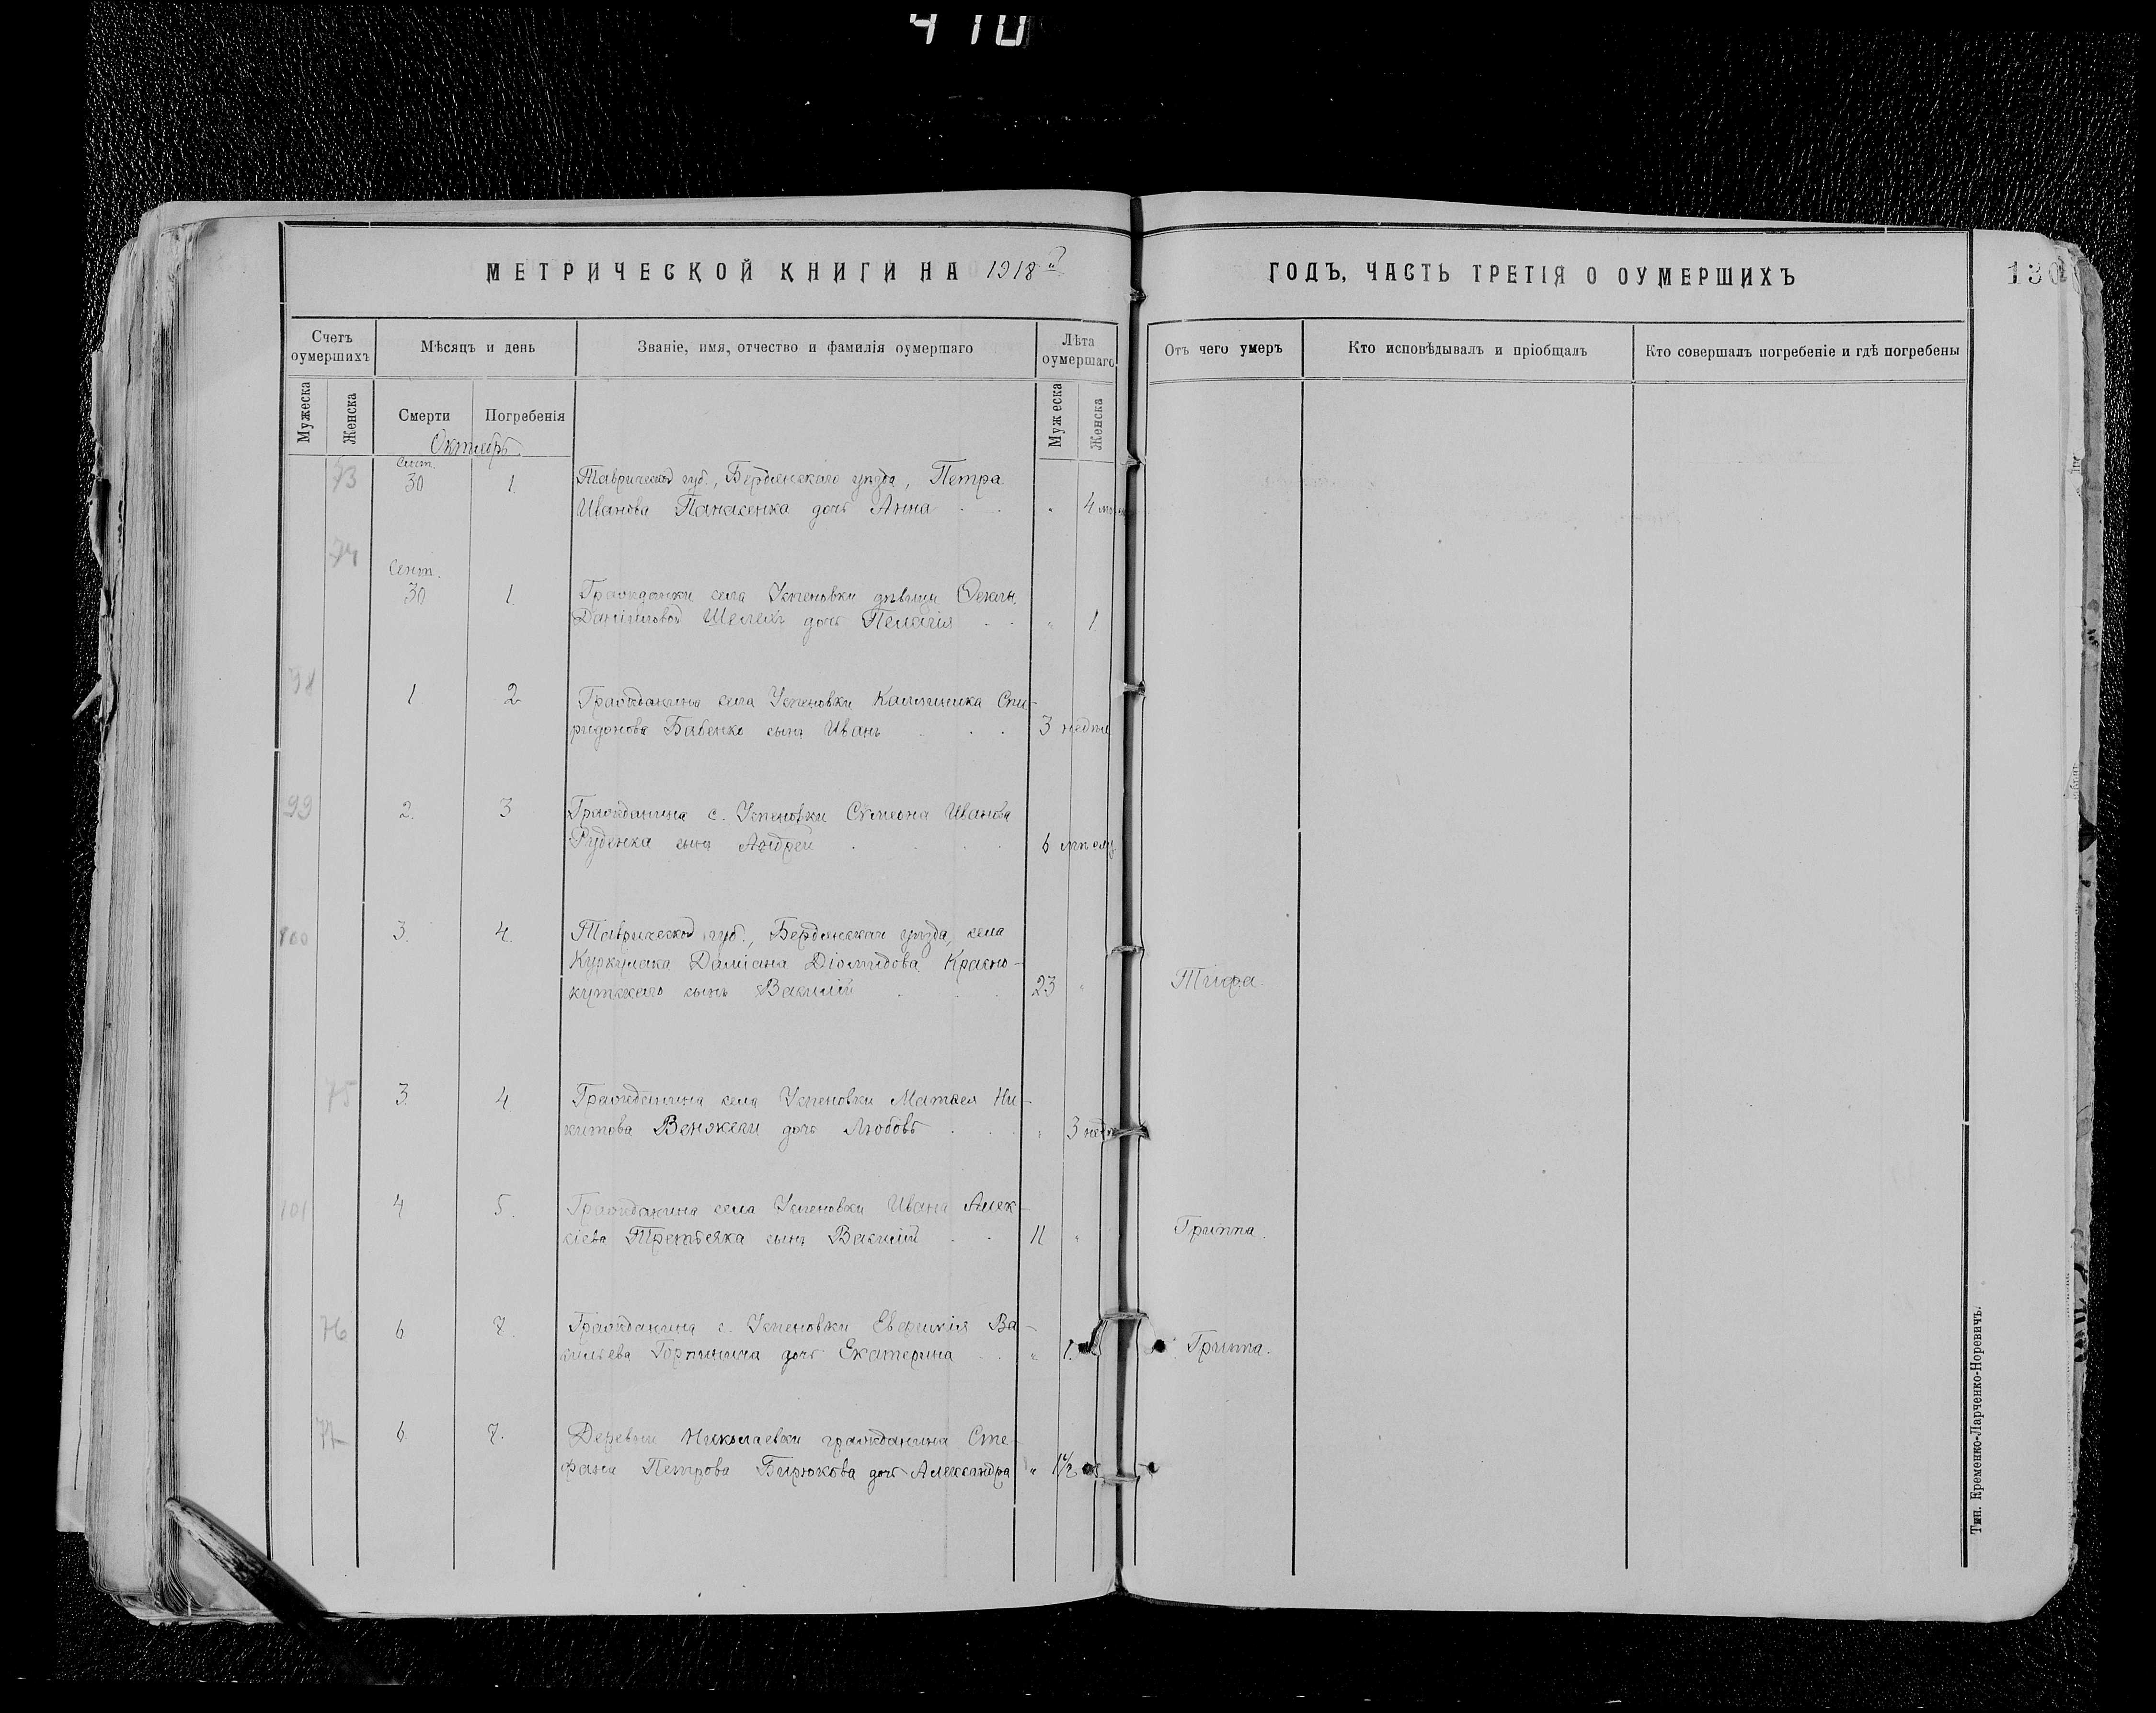 410
МЕТРИЧЕСКОЙ КНИГИ НА 1918 й
ГОДЪ, ЧАСТЬ ТРЕТІЯ О ОУМЕРШИХЪ
130
Счетъ оумершихъ
Мѣсяцъ и день
Званіе, имя, отчество и фамилія оумершаго
Лѣта оумершаго
Отъ чего умеръ
Кто исповѣдывалъ и пріобщалъ
Кто совершалъ погребеніе и гдѣ погребены
Мужеска
Женска
Смерти
Погребенія
Мужеска
Женска
Октябрь
73 Сент. 30 1 Таврической губ., Бердянскаго уѣзда, Петра
Иванова Панасенка дочь Анна " 4 мѣс
74 Сент. 30 1 Гражданки села Успеновки дѣвицы
Даніиловой дочь Пелагія " 1
98 1 2 Гражданина села Успеновки Каллиника Спи-
ридонова Бабенко сынъ Иванъ 3 недѣли
99 2. 3 Гражданина с. Успеновки Сѵмеона Иванова
Руденка сынъ Андрей 6 мѣсяц.
100 3. 4. Таврической губ., Бердянскаго уѣзда, села
Куркулака Даміана Діомидова Красно-
кутскаго сынъ Василій 23 " Тифа.
75 3 4 Гражданина села Успеновки Матѳея Ни-
китова Венжеги дочь Любовь " 3 нед
101 4 5. Гражданина села Успеновки Ивана Алек-
сіева Третьяка сынъ Василій 11 " Гриппа.
76 6 7. Гражданина с. Успеновки Евфимія Ва-
сильева дочь Екатерина " 1. Гриппа.
77 6. 7. Деревни Николаевки гражданина Сте-
фана Петрова Бирюкова дочь Александра " 1½
Тип. Еременко-Ларченко-Норевичъ.